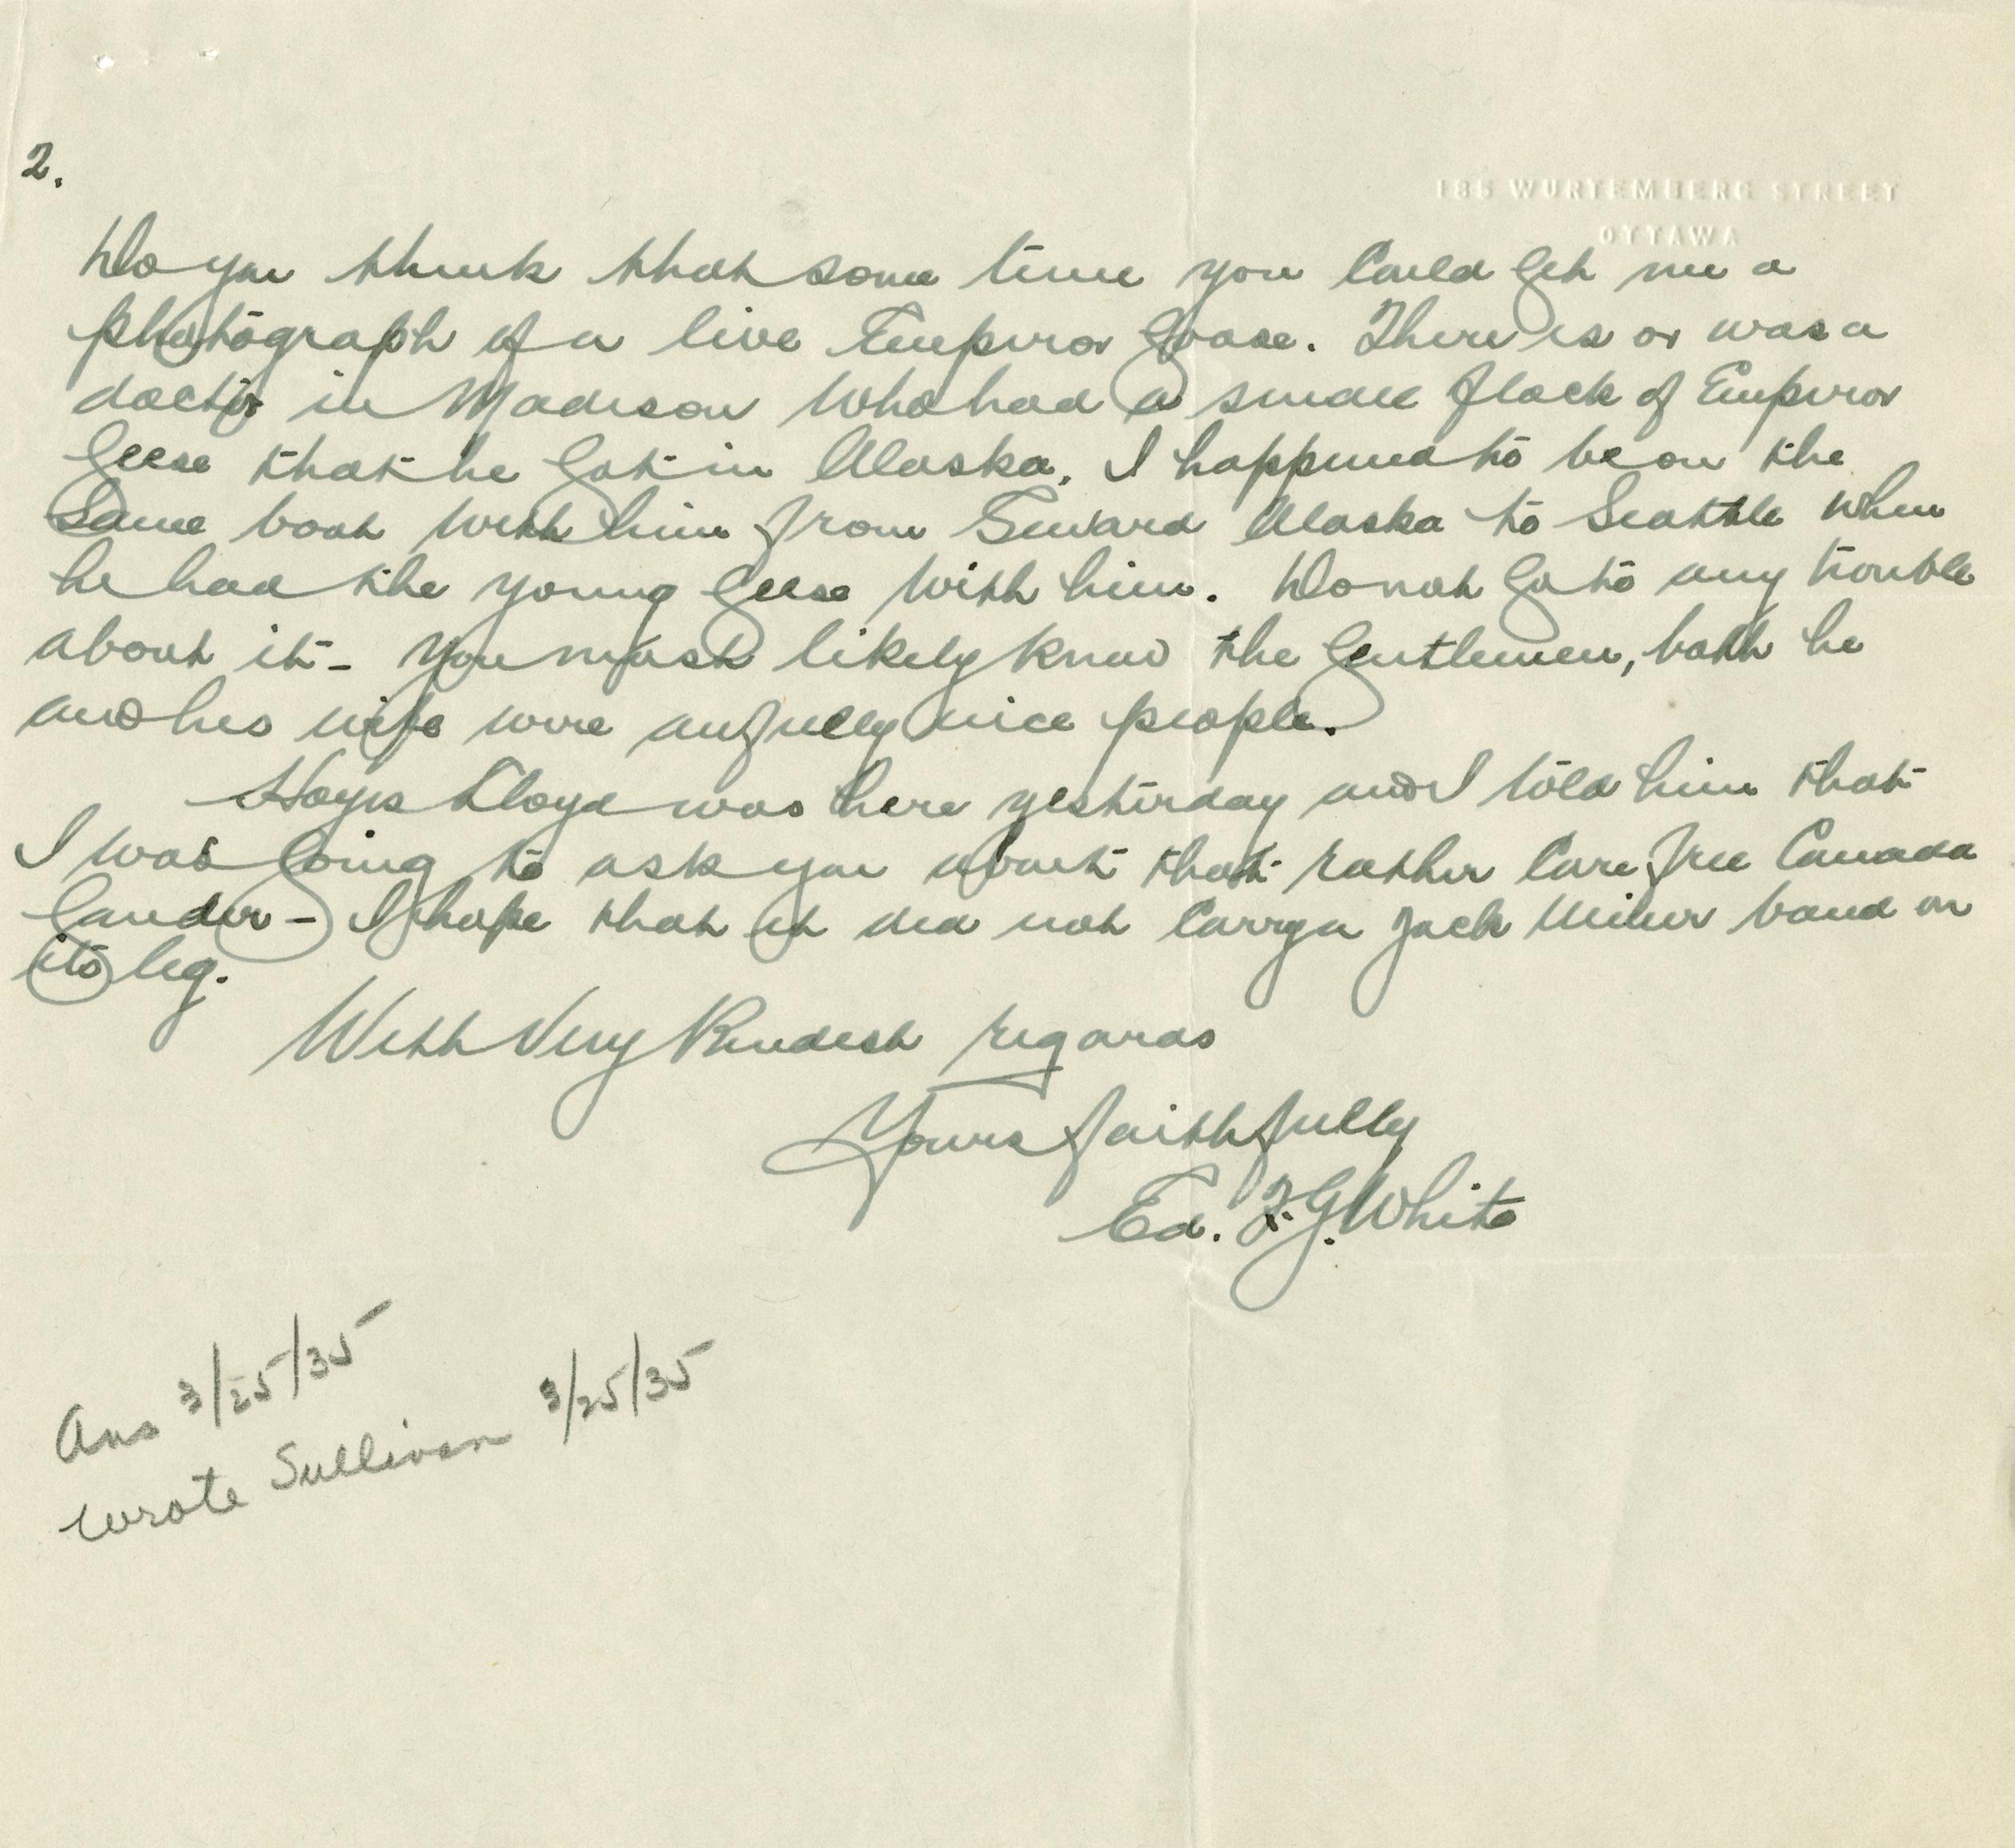 2.
185 WURTEMBERG STREET
OTTAWA
Do you think that some time you could get me a
photograph of a live Emperor Goose. There is or was a
doctor in Madison who had a small flock of Emperor
Geese that he got in Alaska. I happened to be on the
same boat with him from Seward Alaska to Seattle when
he had the young geese with him. Do not go to any trouble
about it - you most likely know the gentlemen, both he
and his wife were awfully nice people.
Hoyes Lloyd was here yesterday and I told him that
I was going to ask you about that rather care free Canada
Gander - I hope that it did not carry a Jack Miner band on
its leg.
With Very Kindest regards
Yours faithfully
Ed. F.G. White
Ans 3/25/35
wrote Sullivan 3/25/35